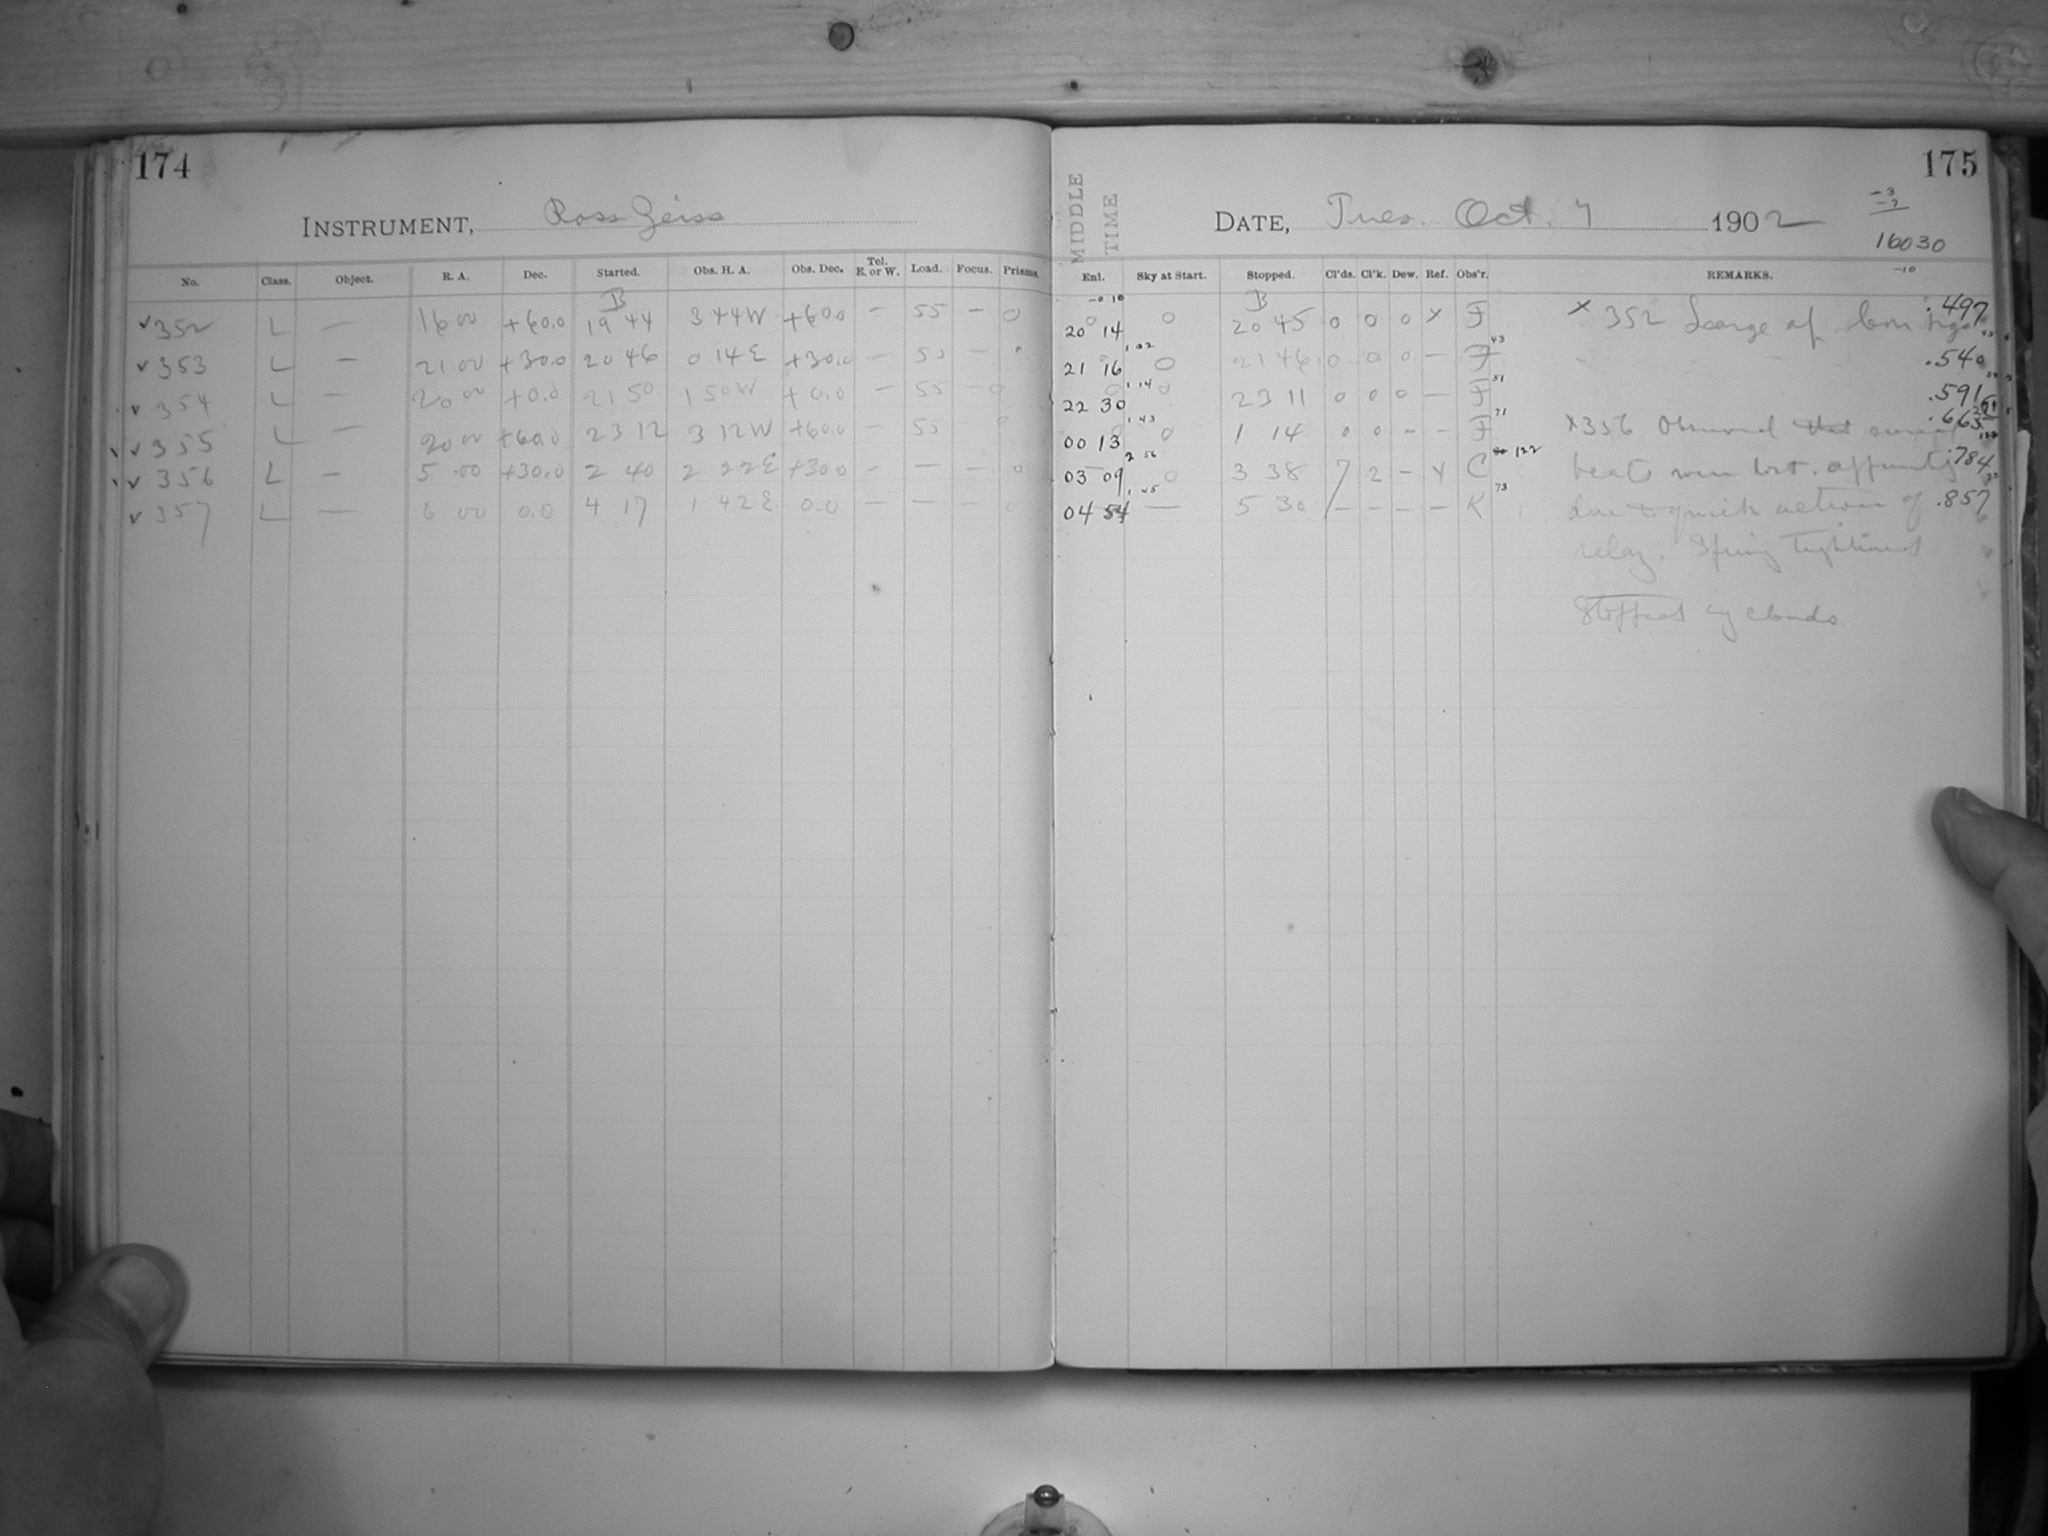 174
INSTRUMENT, Ross Zeiss
No. Class. Object. R. A. Dec. Started. Obs. H. A. Obs. Dec. Tel. E. or W. Load. Focus. Prisms.
B
✓352 L — 16 00 +60.0 19 44 3 44W +60.0 — 55 — 0
✓353 L — 21 00 +30.0 20 46 0 14E +30.0 — 55 —
✓354 L — 20 00 +0.0 21 50 1 50W +0.0 — 55 — 0
✓355 L — 20 00 +60.0 23 12 3 12W +60.0 — 55 0
✓356 L — 5 00 +30.0 2 40 2 22E +30.0 — — — 0
✓357 L — 6 00 0.0 4 17 1 42E 0.0 — — — 0
175
MIDDLE TIME
DATE, Tues. Oct. 7 1902
-3
-7
16030
-10
Enl. Sky at Start. Stopped. Cl'ds. Cl'k. Dew. Ref. Obs'r. REMARKS.
-0 10 B
20 14 0 20 45 0 0 0 x F x 352 .497
1,02 43
21 16 0 21 46 0 0 0 — F .540
1,14 51
22 30 0 23 11 0 0 0 — F .591
1,43 71
00 13 0 1 14 0 0 — — F x356 Observed that .663
2 56 122
03 09 0 3 38 7 2 — x C beats were lost. apparently .784
1,45 73
04 54 — 5 30 — — — — K due to quick action of .857
relay. Spring tightened
Stopped by clouds.